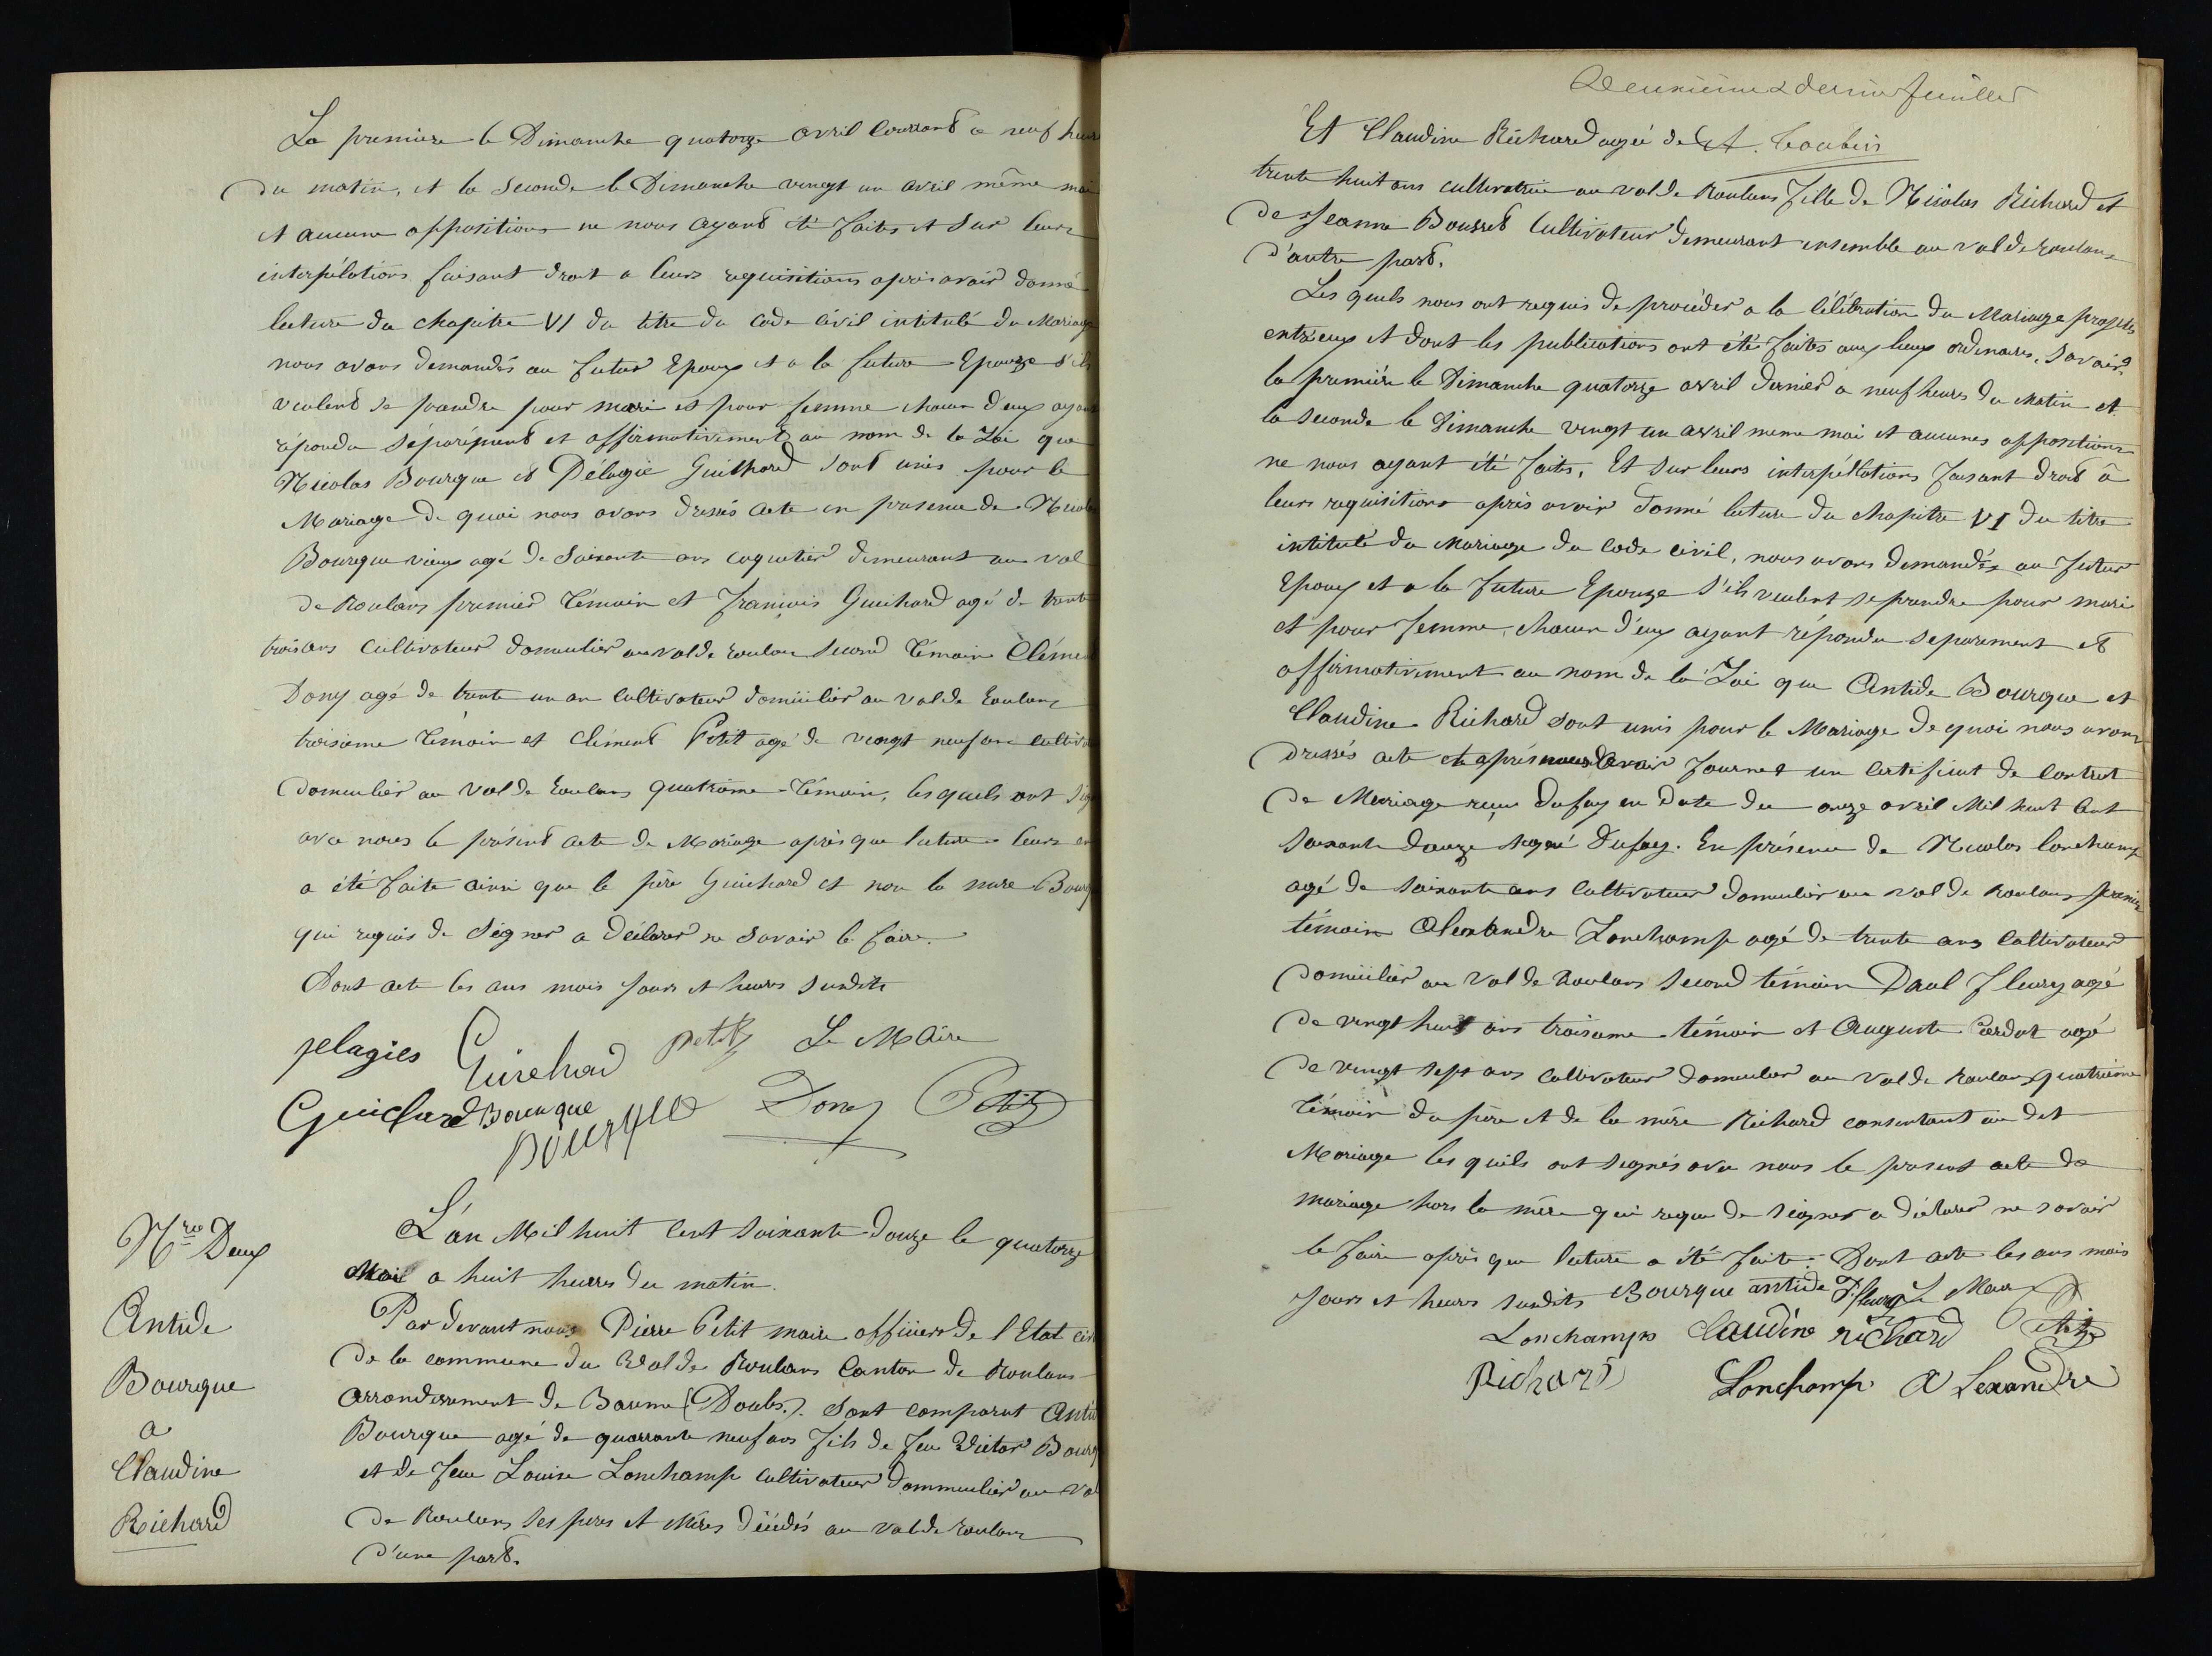 La première le Dimanche quatorze avril courrant a neuf heur
du matin, et la seconde le Dimanche vingt un avril même moi
et aucune oppositions ne nous ayant été faites et sur leurs
interpélations faisant droit a leurs requisitions après avoir donné
lecture du chapitre VI du titre du code civil intitulé du Mariage
nous avons demandés au futur Epoux et a la future Epouze s'ils
veulent se prendre pour mari et pour femme chacun d'eux ayant
répondu séparément et affirmativement au nom de la Loi que
Nicolas Bourque et Pelagie Guichard sont unis pour le
Mariage de quoi nous avons dressés acte en presence de Nicolas
Bourque vieux agé de soixante ans coquetier demeurant au val
de Roulans premier témoin et François Guichard agé de trente
trois ans Cultivateur domicilier au val de roulans second témoin Clément
Dony agé de trente un an Cultivateur domicilier au val de Roulans
troisième témoin et Clément Petit agé de vingt neuf ans cultiva
domicilier au val de Roulans quatrième témoin, les quels ont sig
avec nous le présent acte de Mariage après que lecture leurs en
a été faite ainsi que le père Guichard et non la mère Bourq
qui requis de Signer a déclarer ne savoir le faire.
Dont acte les ans mois jours et heures susdits
pelagies Guichard Petit Le Maire
Guichard Bourque Dony Petit
Bourque
Nro Deux
Antide
Bourque
a
Claudine
Richard
L'an Mil huit cent soixante douze le quatorze
Mai a huit heures du matin.
Par devant nous Pierre Petit maire officier de l'Etat civ
de la commune du Val de Roulans Canton de Roulans
arrondissement de Baume (Doubs). sont comparut Antid
Bourque agé de quarrante neuf ans fils de feu Victor Bourq
et de feue Louise Lonchamp Cultivateur dommicilier au va
de Roulans ses peres et Mères décédés au val de roulans
d'une part.
Deuxième & dernier feuillet
Et Claudine Richard agée de
trente huit ans cultivatrice au val de Roulans fille de Nicolas Richard et
de Jeanne Bousset Cultivateur demeurant ensemble au val de roulans
d'autre part.
Les quels nous ont requis de procéder a la Célébration du Mariage projetés
entre eux et dont les publications ont été faites aux lieux ordinaires, savoir.
la première le Dimanche quatorze avril dernier a neuf heures du Matin et
la seconde le Dimanche vingt un avril meme moi et aucunes oppositions
ne nous ayant été faites, Et sur leurs interpéllations faisant droit â
leurs requisitions après avoir donné lecture du chapitre VI du titre
intitulé du Mariage du Code civil, nous avons demandés au futur
Epoux et a la future Epouze s'ils veulent se prendre pour mari
et pour femme, chacun d'eux ayant répondu séparement et
affirmativement au nom de la Loi que Antide Bourque et
Claudine Richard sont unis pour le Mariage de quoi nous avons
dressés acte et après nous avoir fournet un Certificat de Contrat
de Mariage reçu Dufay en date du onze avril Mil huit Cent
soixante douze signé Dufay. En présence de Nicolas Lonchamp
agé de soixante ans Cultivateur domicilier au val de Roulans premier
témoin Alexandre Lonchamp agé de trente ans Cultivateur
domicilier au val de Roulans second témoin Paul Fleury agé
de vingt huit ans troisième témoin et Auguste Cardot agé
de vingt sept ans Cultivateur domicilier au val de Roulans quatrième
témoin du père et de la mère Richard consentant au dit
Mariage les quels ont signés avec nous le present acte de
mariage hors la mère qui requi de signer a déclarer ne savoir
le faire après que lecture a été faite. Dont acte les ans mois
jours et heures susdits Bourque antide P. fleury Le Maire
Lonchamps Claudine richard Petit
Richard Lonchamp Alexandre